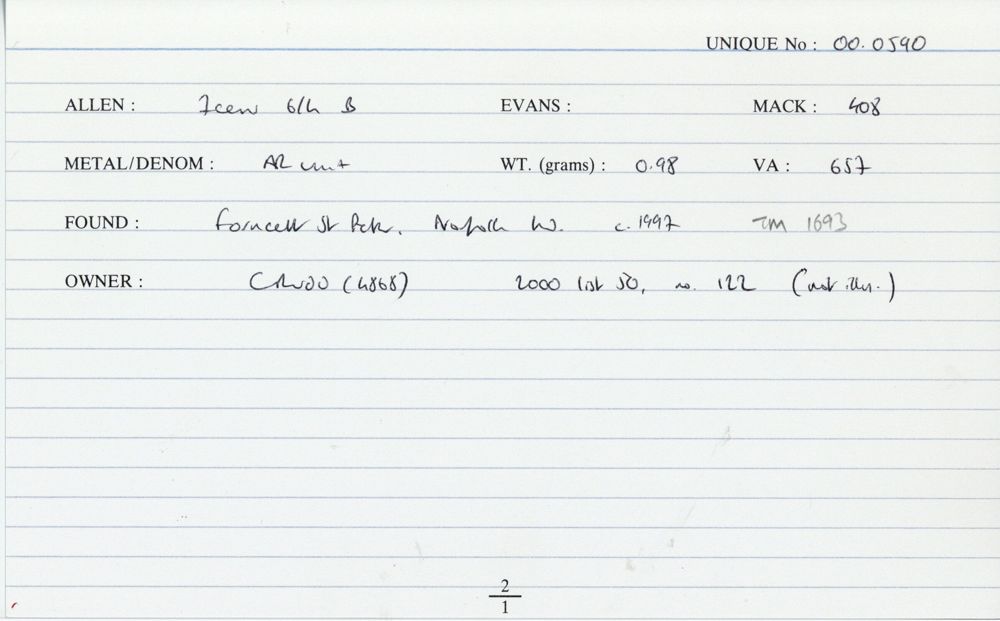 UNIQUE No : 00.0590
ALLEN : Iceni 6/h B EVANS : MACK : 408
METAL/DENOM : AR unit WT. (grams) : 0.98 VA : 657
FOUND : Forncett St Peter, Norfolk W. c. 1997 TM 1693
OWNER : (4868) 2000 list 50, no. 122 (not illus.)
2
1